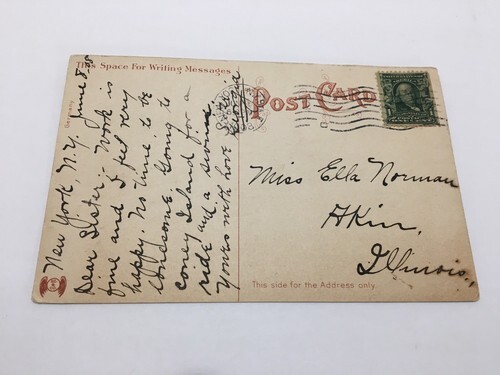 This Space For Writing Messages
Germany
New York N.Y. June 8-08
Dear Sister:- Work is
fine and I feel very
happy. No time to be
lonesome. Going to
coney Island for a
ride and a swim.
Yours with love Georgia
POST CARD
Miss Ella Norman
Akin,
Illinois.
This side for the Address only.